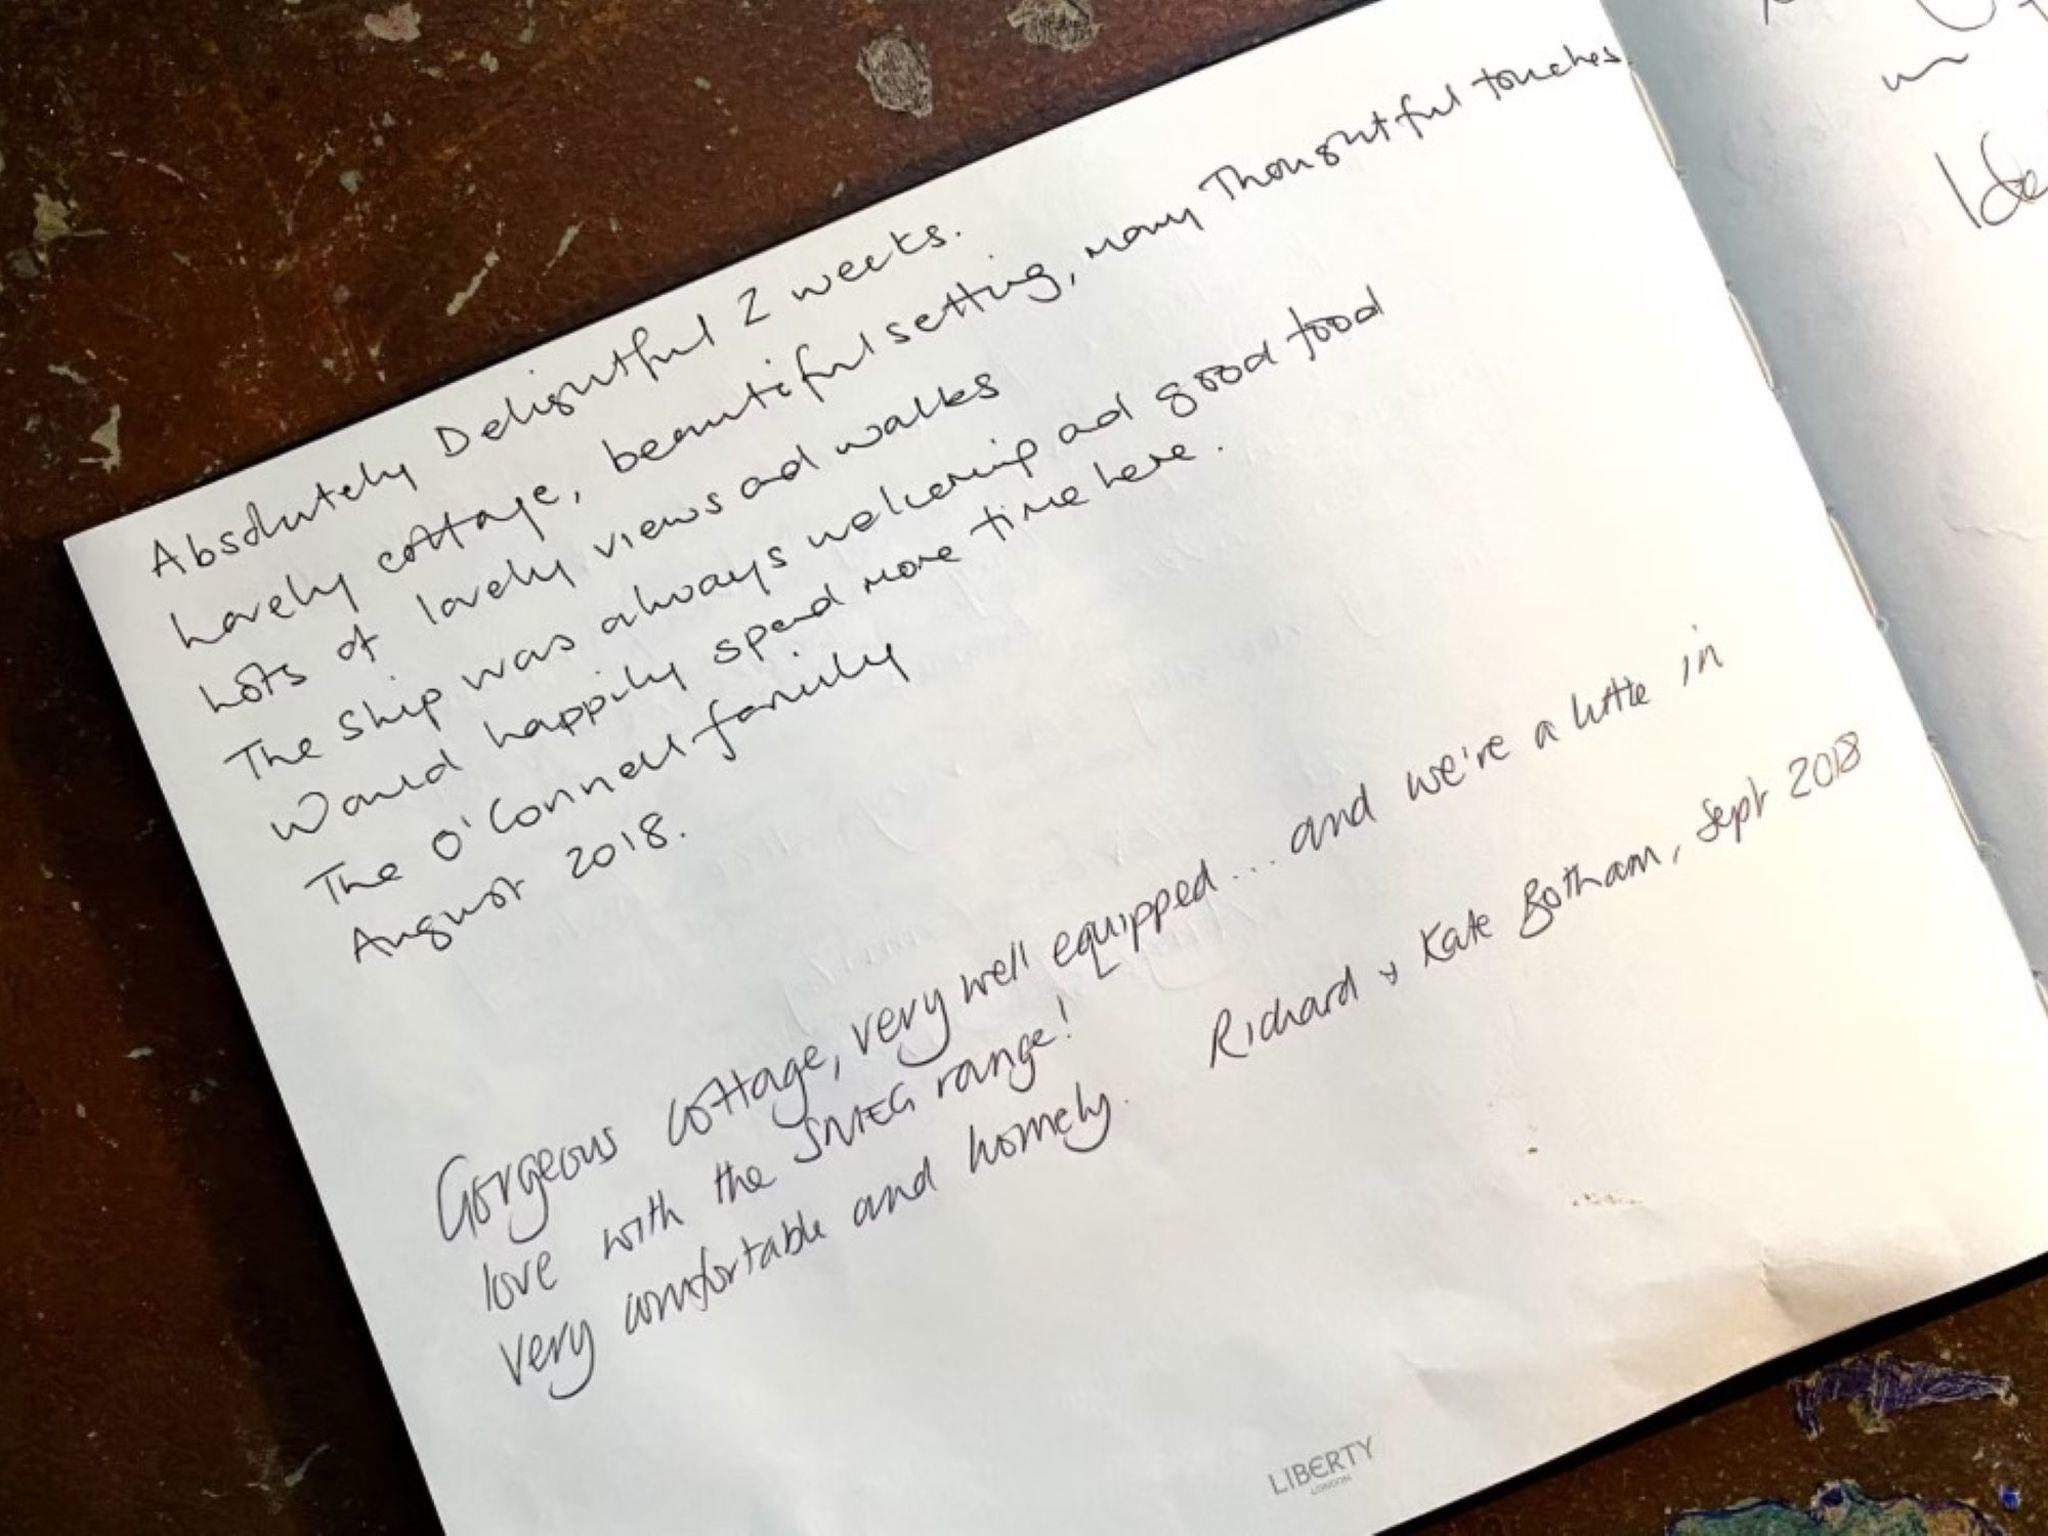 Absolutely Delightful 2 weeks.
Lovely cottage, beautiful setting, many Thoughtful touches.
Lots of lovely views ad walks
The Ship was always welcoming ad good food
Would happily spend more time here.
The O'Connell family
August 2018.
Gorgeous cottage, very well equipped... and we're a little in
love with the SMEG range!
Very comfortable and homely. Richard & Kate Botham, Sept 2018
LIBERTY
LONDON